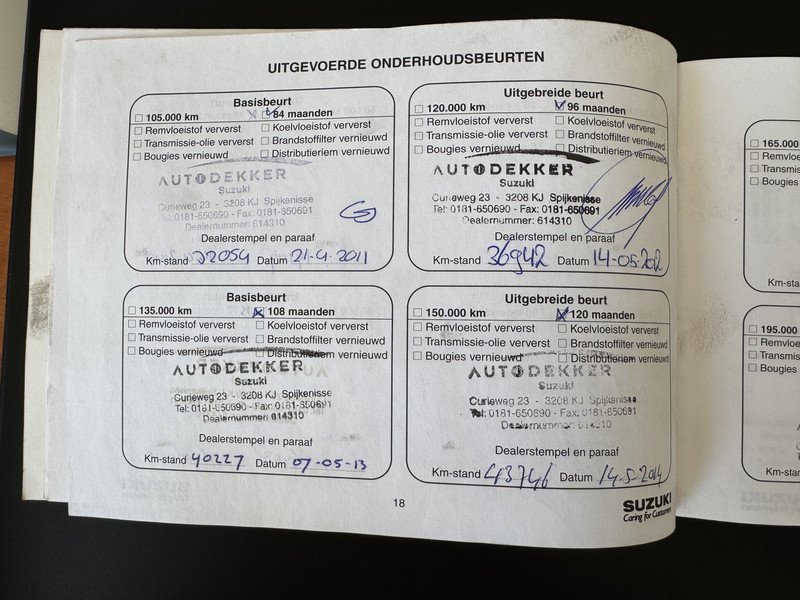 UITGEVOERDE ONDERHOUDSBEURTEN
Basisbeurt
☐ 105.000 km ☑ 84 maanden
☐ Remvloeistof ververst ☐ Koelvloeistof ververst
☐ Transmissie-olie ververst ☐ Brandstoffilter vernieuwd
☐ Bougies vernieuwd ☐ Distributieriem vernieuwd
AUTODEKKER
Suzuki
Curieweg 23 - 3208 KJ Spijkenisse
Tel: 0181-650690 - Fax: 0181-650691
Dealernummer: 614310
Dealerstempel en paraaf
Km-stand 22054 Datum 21-4-2011
Uitgebreide beurt
☐ 120.000 km ☑ 96 maanden
☐ Remvloeistof ververst ☐ Koelvloeistof ververst
☐ Transmissie-olie ververst ☐ Brandstoffilter vernieuwd
☐ Bougies vernieuwd ☐ Distributieriem vernieuwd
AUTODEKKER
Suzuki
Curieweg 23 - 3208 KJ Spijkenisse
Tel: 0181-650690 - Fax: 0181-650691
Dealernummer: 614310
Dealerstempel en paraaf
Km-stand 36942 Datum 14-05-2012
Basisbeurt
☐ 135.000 km ☒ 108 maanden
☐ Remvloeistof ververst ☐ Koelvloeistof ververst
☐ Transmissie-olie ververst ☐ Brandstoffilter vernieuwd
☐ Bougies vernieuwd ☐ Distributieriem vernieuwd
AUTODEKKER
Suzuki
Curieweg 23 - 3208 KJ Spijkenisse
Tel: 0181-650690 - Fax: 0181-650691
Dealernummer: 614310
Dealerstempel en paraaf
Km-stand 40227 Datum 07-05-13
Uitgebreide beurt
☐ 150.000 km ☒ 120 maanden
☐ Remvloeistof ververst ☐ Koelvloeistof ververst
☐ Transmissie-olie ververst ☐ Brandstoffilter vernieuwd
☐ Bougies vernieuwd ☐ Distributieriem vernieuwd
AUTODEKKER
Suzuki
Curieweg 23 - 3208 KJ Spijkenisse
Tel: 0181-650690 - Fax: 0181-650691
Dealernummer: 614310
Dealerstempel en paraaf
Km-stand 43746 Datum 14-5-2014
18
SUZUKI
Caring for Customers
☐ 165.000
☐ Remvloeis
☐ Transmiss
☐ Bougies
Km-stan
☐ 195.000
☐ Remvloei
☐ Transmis
☐ Bougies
Km-sta